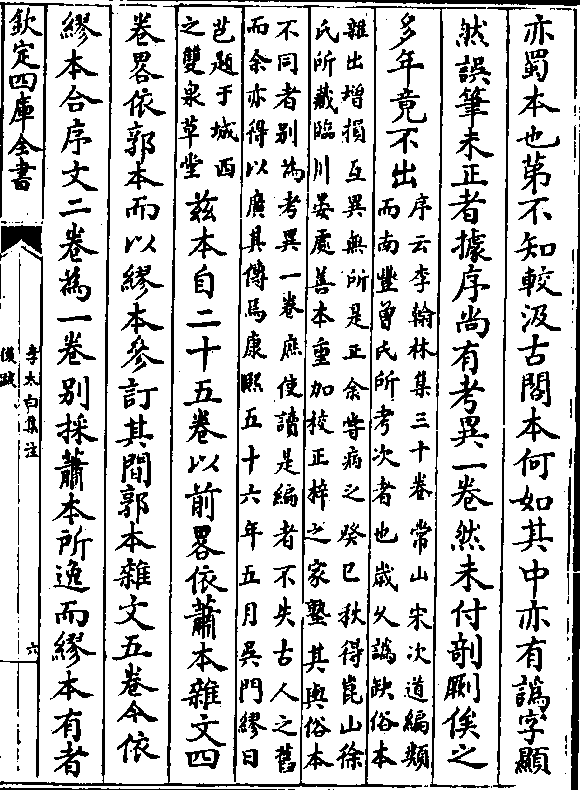 亦蜀本也第不知較汲古閣本何如其中亦有譌字顯
然誤筆未正者據序尚有考異一卷然未付剞劂俟之
多年竟不出
序云李翰林集三十卷常山宋次道編類
而南豐曾氏所考次者也歲久譌缺俗本
雜出增損互異無所是正余嘗病之癸巳秋得崑山徐
氏所藏臨川晏處善本重加校正梓之家塾其與俗本
不同者別為考異一卷庶使讀是編者不失古人之舊
而余亦得以廣其傳焉康熙五十六年五月吳門繆曰
芑題于城西
之雙泉草堂
兹本自二十五卷以前畧依蕭本雜文四
卷畧依郭本而以繆本參訂其間郭本雜文五卷今依
繆本合序文二卷為一卷別採蕭本所逸而繆本有者
欽定四庫全書
李太白集注
後跋
六